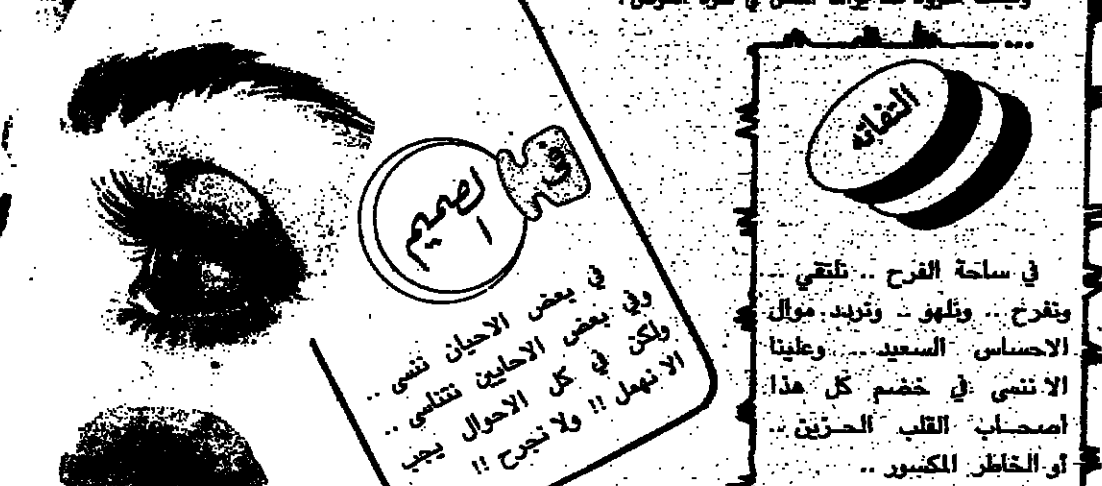 التفاته
في ساحة الفرح .. نلتقي ..
ونفرح .. ونلهو .. ونردد موال
الاحساس السعيد .. وعلينا
الا ننسى في خضم كل هذا
اصحاب القلب الحزين ..
أو الخاطر المكسور ..
في
الصميم
في بعض الاحيان ننسى ..
وفي بعض الاحايين نتناسى ..
ولكن في كل الاحوال يجب
الا نهمل !! ولا نجرح !!